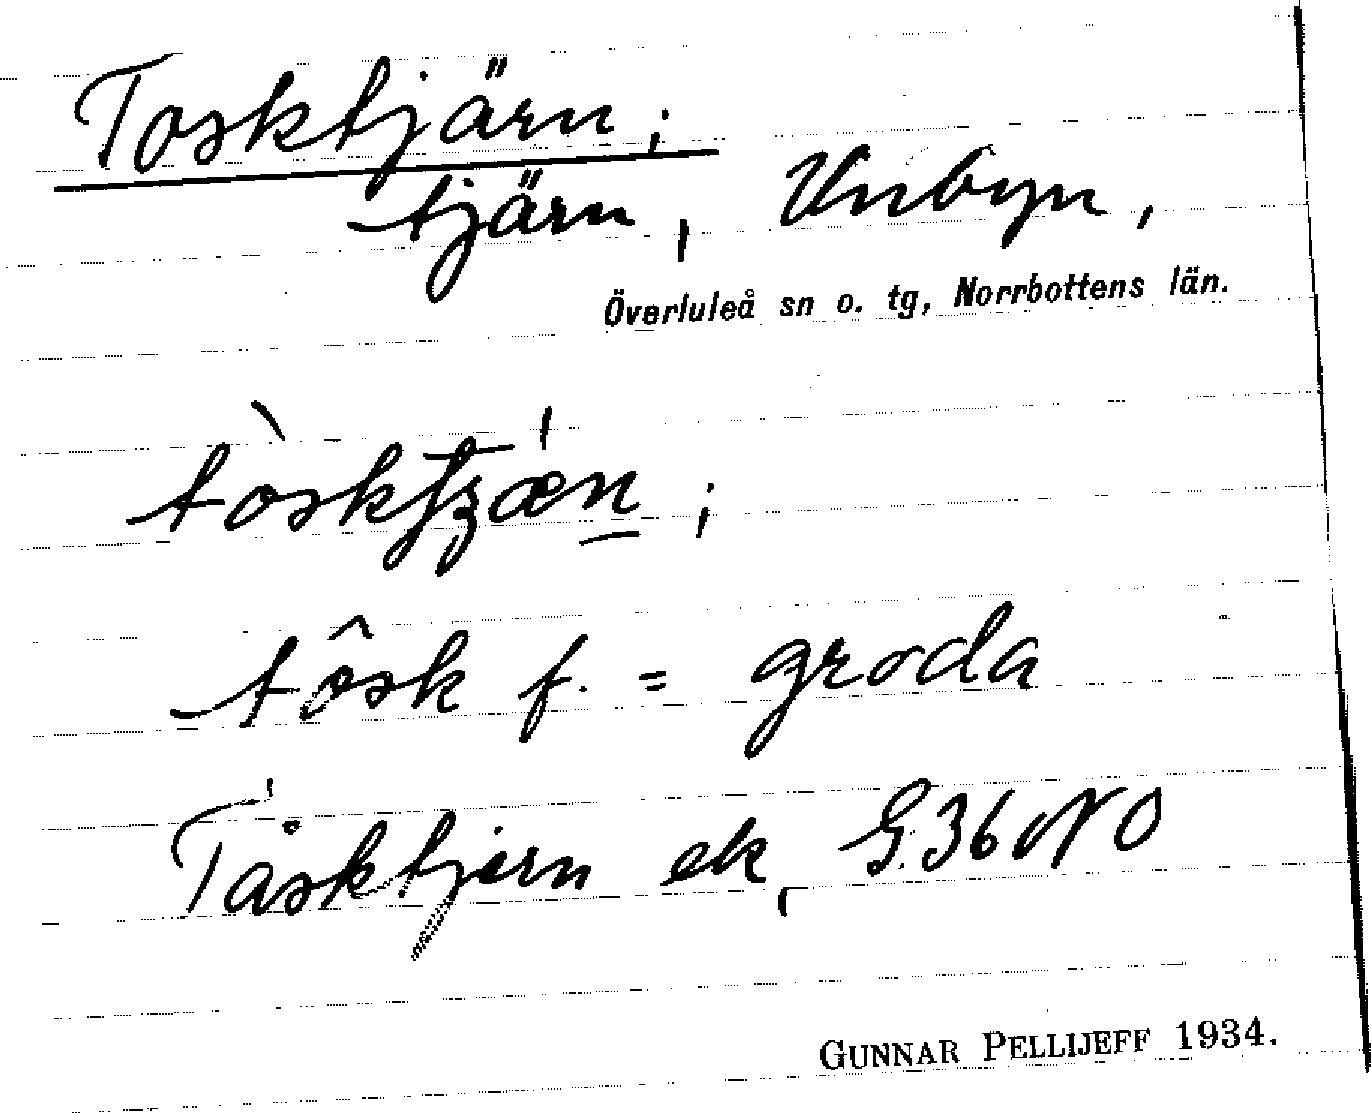 Tosktjärn;
tjärn, Unbyn,
Överluleå sn o. tg, Norrbottens län.
tòskt͡ʒæ̍n̲;
tôsk f. = groda
Tåsktjern ek, G.36 NO
GUNNAR PELLIJEFF 1934.